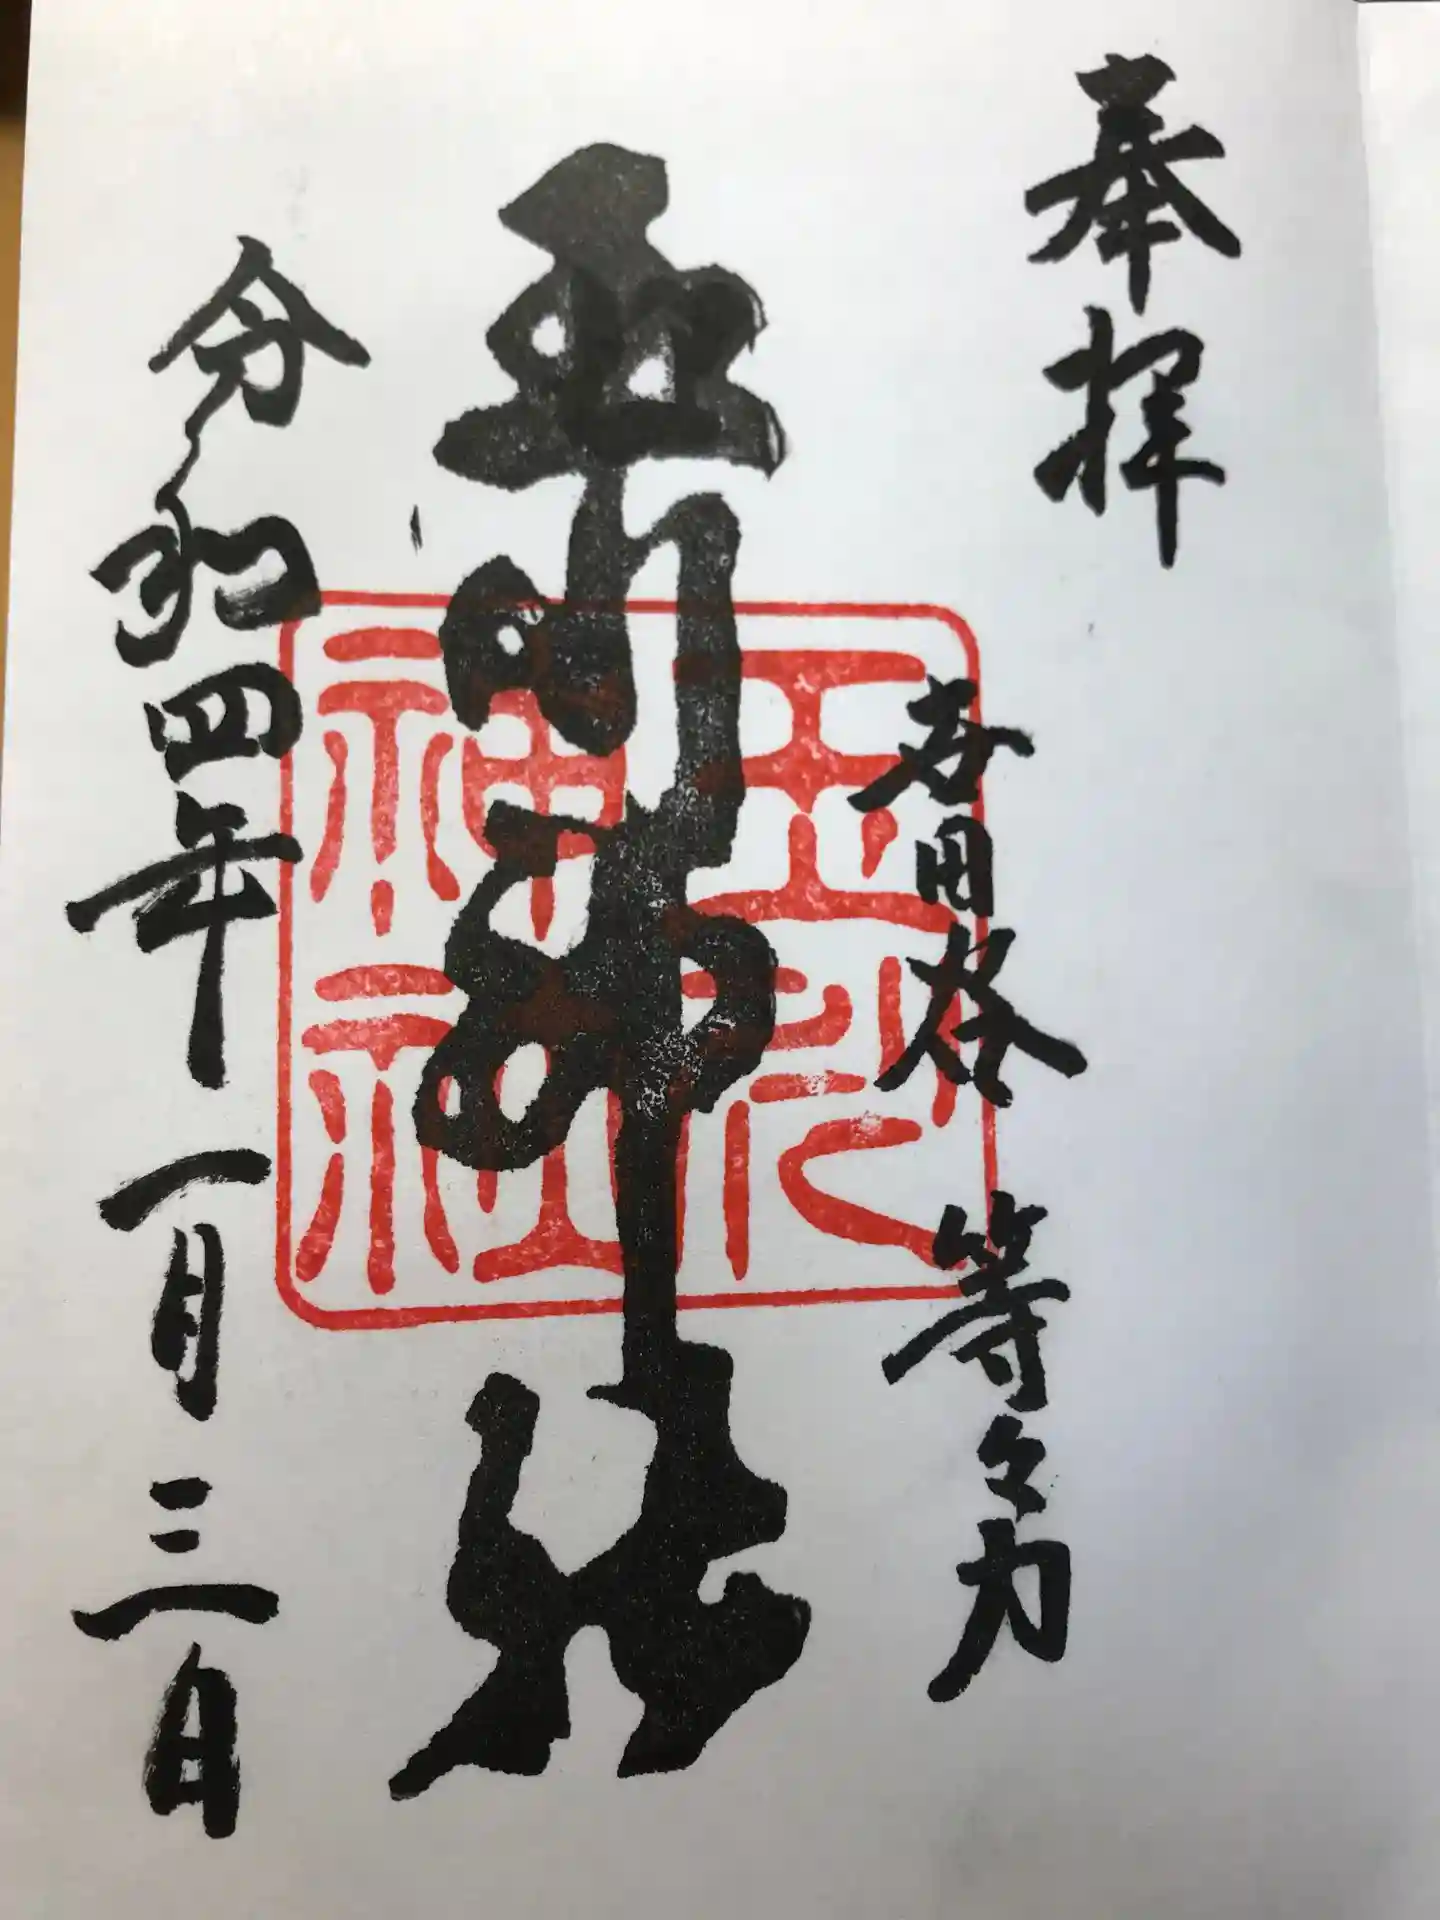 奉拝
世田谷 等々力
玉川神社
令和四年一月三日